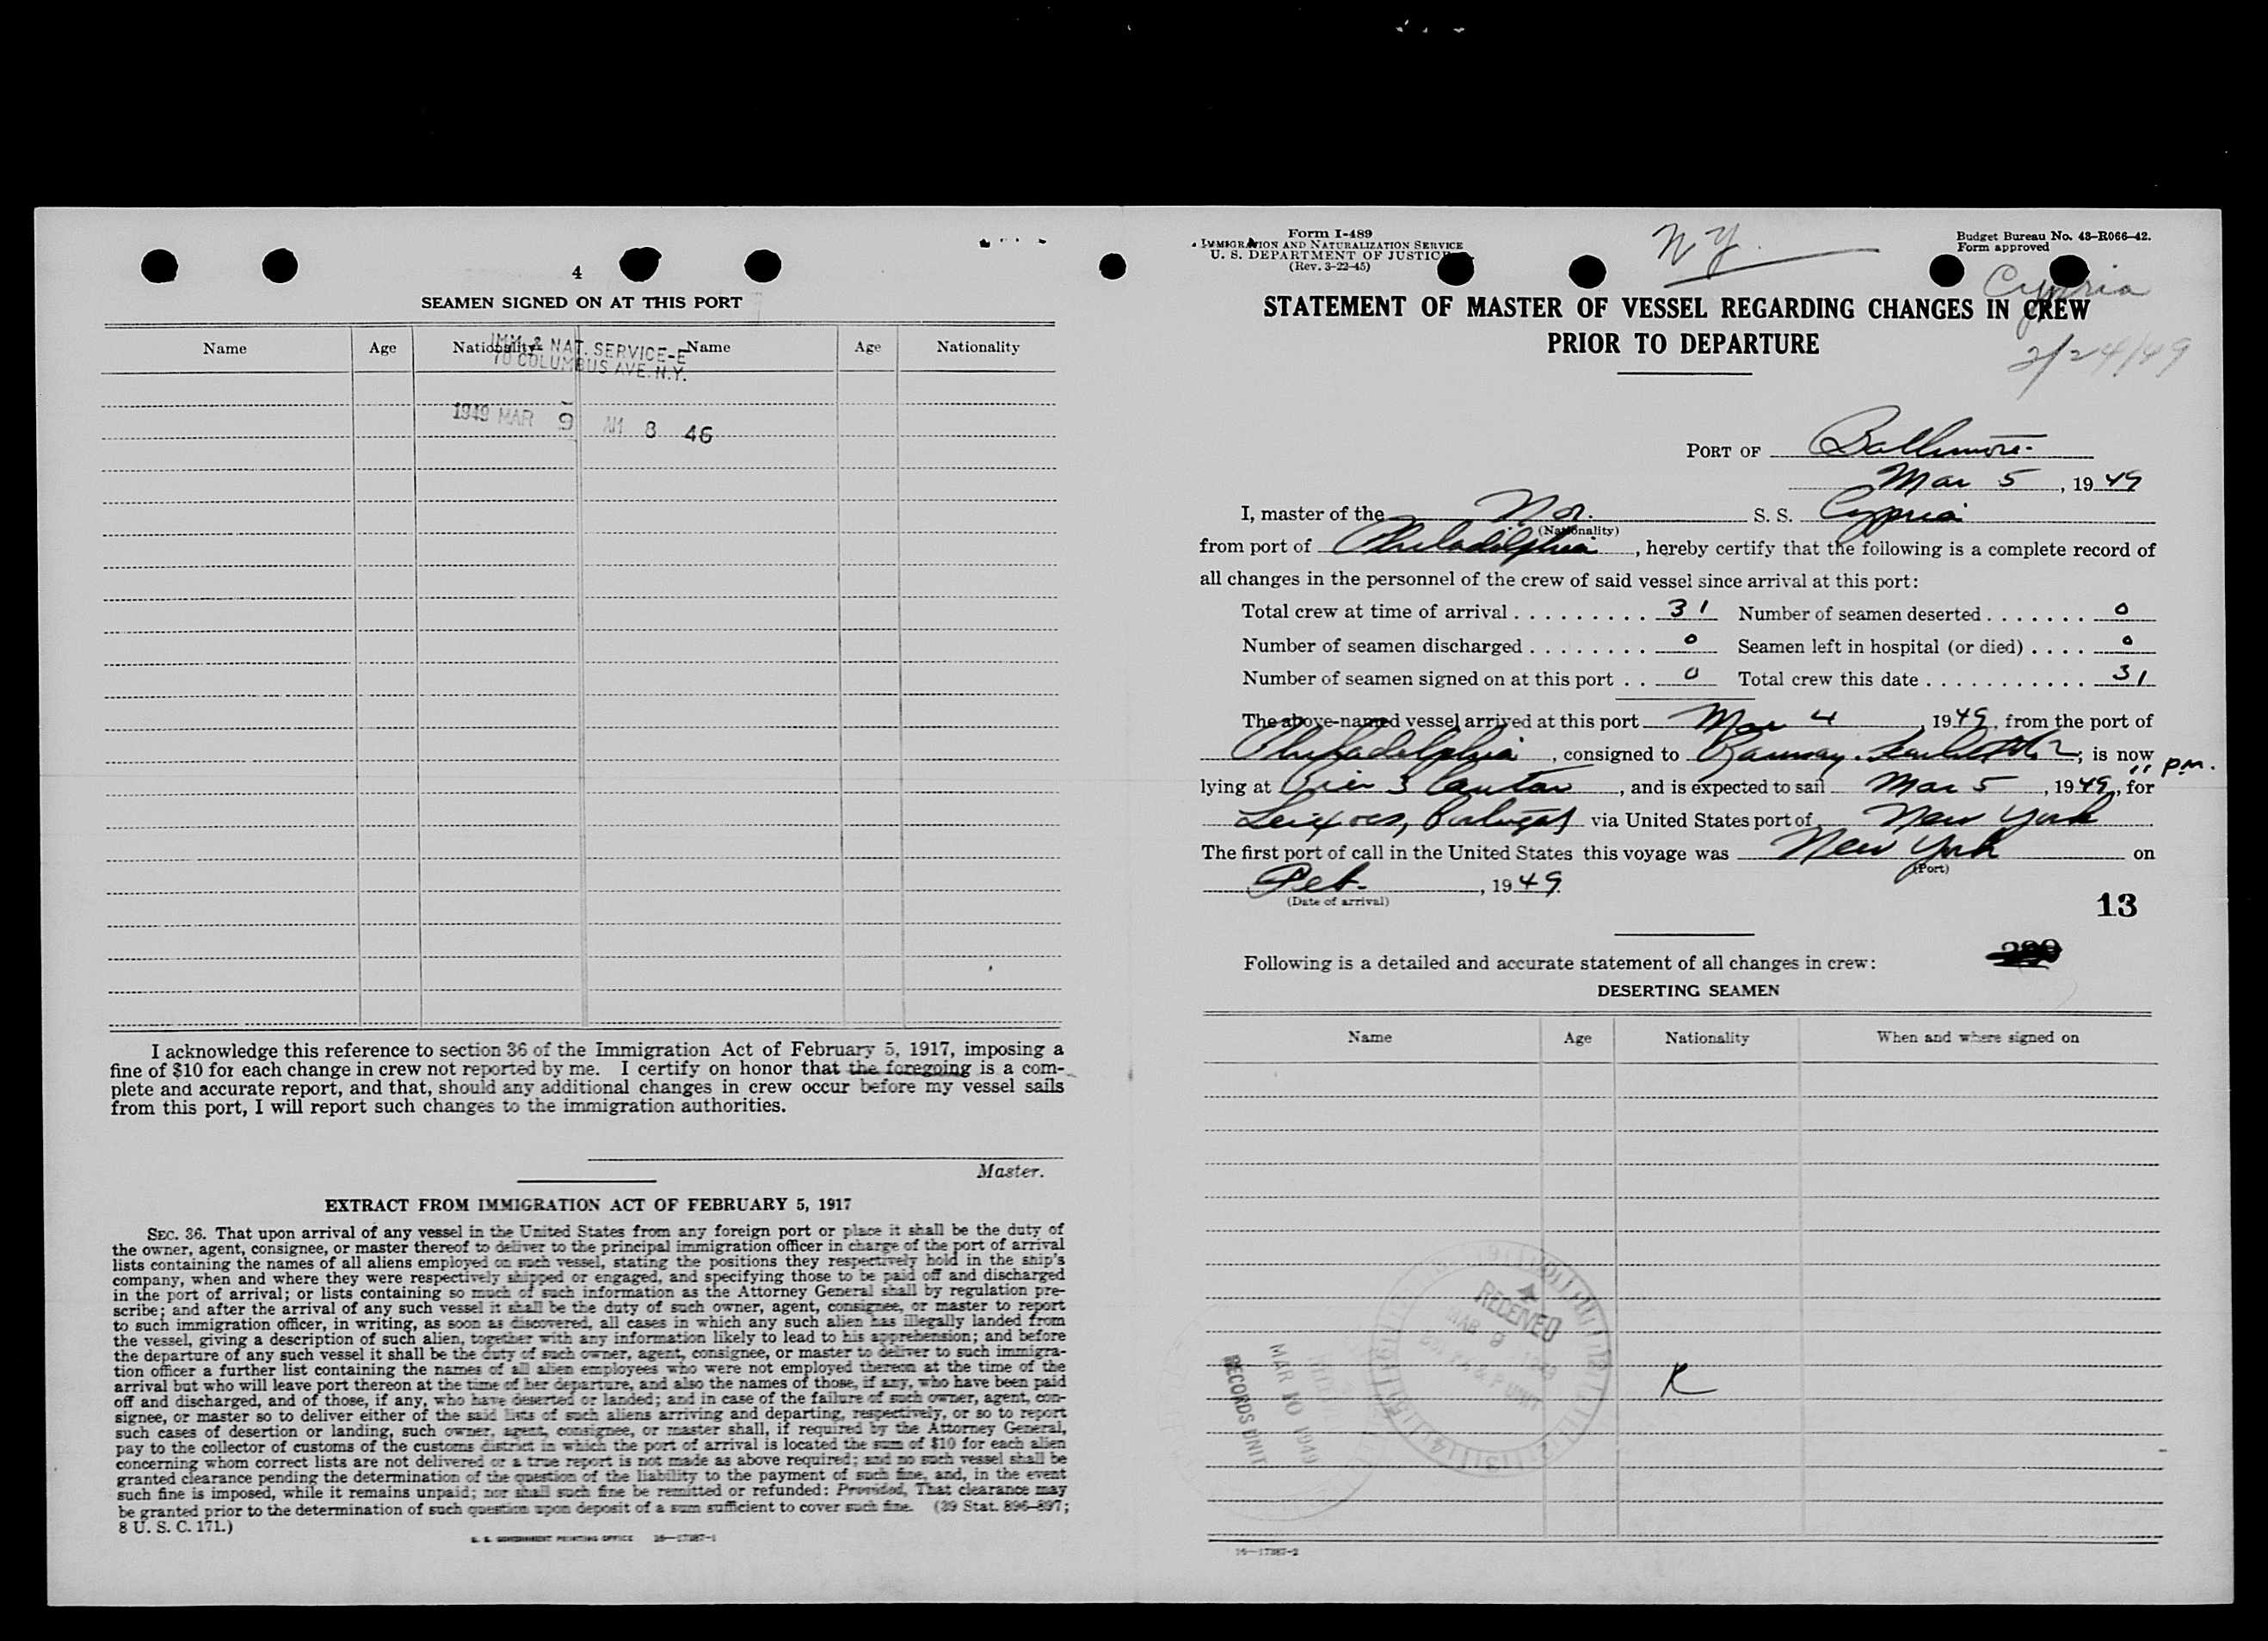 4
SEAMEN SIGNED ON AT THIS PORT
Name Age Nationality Name Age Nationality
IMM. & NAT. SERVICE-E
70 COLUMBUS AVE. N.Y.
1949 MAR 9 AM 8 46
I acknowledge this reference to section 36 of the Immigration Act of February 5, 1917, imposing a
fine of $10 for each change in crew not reported by me. I certify on honor that the foregoing is a com-
plete and accurate report, and that, should any additional changes in crew occur before my vessel sails
from this port, I will report such changes to the immigration authorities.
Master.
EXTRACT FROM IMMIGRATION ACT OF FEBRUARY 5, 1917
SEC. 36. That upon arrival of any vessel in the United States from any foreign port or place it shall be the duty of
the owner, agent, consignee, or master thereof to deliver to the principal immigration officer in charge of the port of arrival
lists containing the names of all aliens employed on such vessel, stating the positions they respectively hold in the ship's
company, when and where they were respectively shipped or engaged, and specifying those to be paid off and discharged
in the port of arrival; or lists containing so much of such information as the Attorney General shall by regulation pre-
scribe; and after the arrival of any such vessel it shall be the duty of such owner, agent, consignee, or master to report
to such immigration officer, in writing, as soon as discovered, all cases in which any such alien has illegally landed from
the vessel, giving a description of such alien, together with any information likely to lead to his apprehension; and before
the departure of any such vessel it shall be the duty of such owner, agent, consignee, or master to deliver to such immigra-
tion officer a further list containing the names of all alien employees who were not employed thereon at the time of the
arrival but who will leave port thereon at the time of her departure, and also the names of those, if any, who have been paid
off and discharged, and of those, if any, who have deserted or landed; and in case of the failure of such owner, agent, con-
signee, or master so to deliver either of the said lists of such aliens arriving and departing, respectively, or so to report
such cases of desertion or landing, such owner, agent, consignee, or master shall, if required by the Attorney General,
pay to the collector of customs of the customs district in which the port of arrival is located the sum of $10 for each alien
concerning whom correct lists are not delivered or a true report is not made as above required; and no such vessel shall be
granted clearance pending the determination of the question of the liability to the payment of such fine, and, in the event
such fine is imposed, while it remains unpaid; nor shall such fine be remitted or refunded: Provided, That clearance may
be granted prior to the determination of such question upon deposit of a sum sufficient to cover such fine. (39 Stat. 896–897;
8 U. S. C. 171.)
U. S. GOVERNMENT PRINTING OFFICE 16—17387-1
Form I-489
IMMIGRATION AND NATURALIZATION SERVICE
U. S. DEPARTMENT OF JUSTICE
(Rev. 3-22-45)
N Y.
Budget Bureau No. 43–R066–42.
Form approved
Cypria
2/24/49
STATEMENT OF MASTER OF VESSEL REGARDING CHANGES IN CREW
PRIOR TO DEPARTURE
PORT OF Baltimore
Mar 5, 1949
I, master of the Nor. S. S. Cypria
(Nationality)
from port of Philadelphia, hereby certify that the following is a complete record of
all changes in the personnel of the crew of said vessel since arrival at this port:
Total crew at time of arrival 31 Number of seamen deserted 0
Number of seamen discharged 0 Seamen left in hospital (or died) 0
Number of seamen signed on at this port 0 Total crew this date 31
The above-named vessel arrived at this port Mar 4, 1949, from the port of
Philadelphia, consigned to Ramsay. Scarlett; is now
11 pm.
lying at Pier 3 Canton, and is expected to sail Mar 5, 1949, for
Leixoes, Portugal via United States port of New York
The first port of call in the United States this voyage was New York on
(Port)
Feb., 1949.
(Date of arrival)
13
Following is a detailed and accurate statement of all changes in crew:
DESERTING SEAMEN
Name Age Nationality When and where signed on
RECEIVED
MAR 9 1949
MAR 10 1949
RECORDS UNIT
R
16—17387-2